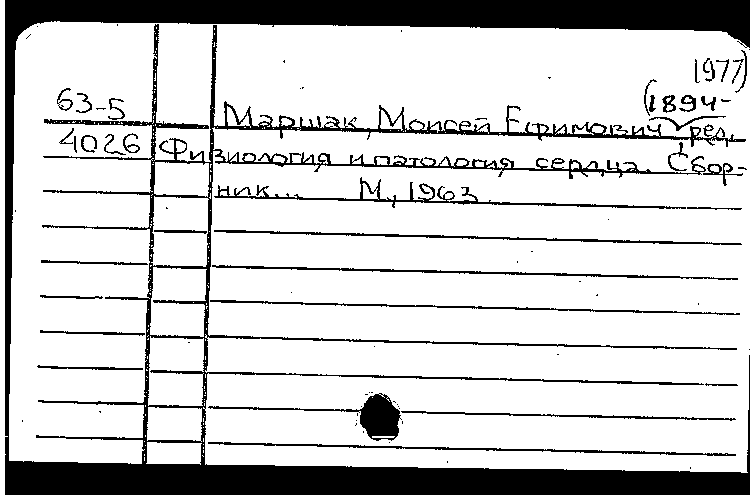 1977)
63-5 (1894-
Маршак, Моисей Ефимович, ред.
4026 Физиология и патология сердца. Сбор-
ник... М., 1963